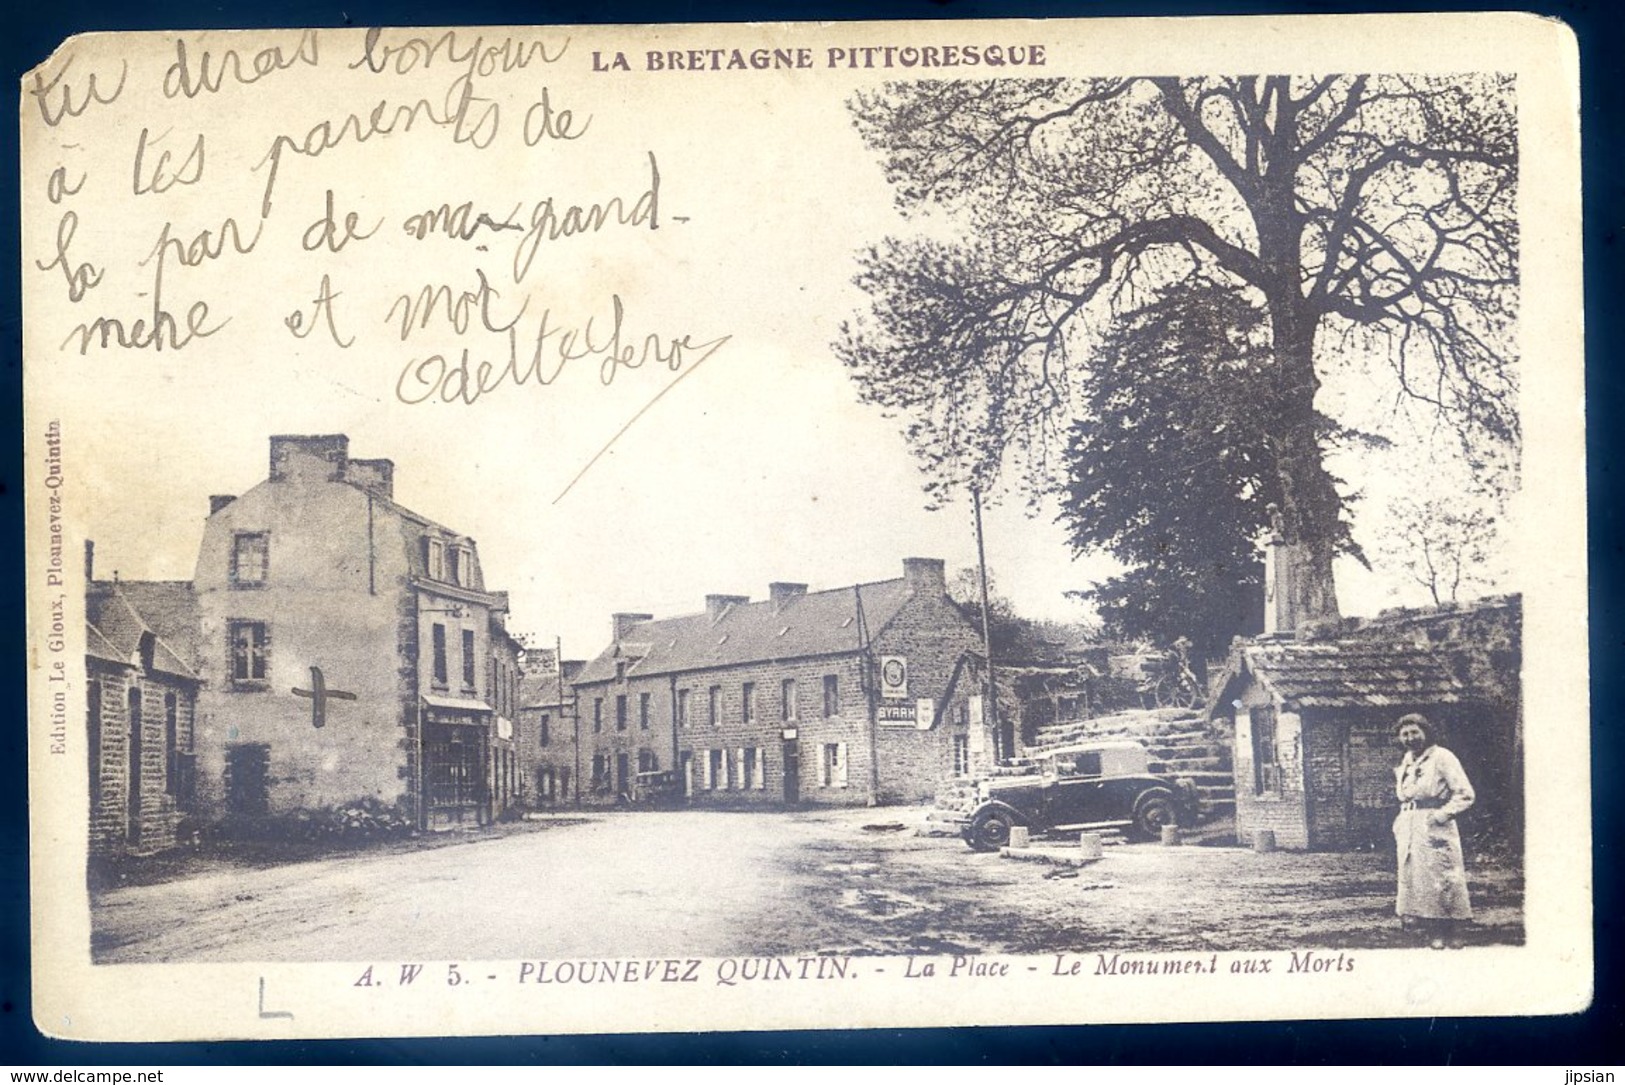 LA BRETAGNE PITTORESQUE
tu diras bonjour
à tes parents de
la par de ma grand-
mère et moi
Odette Leroy
Edition Le Gloux, Plounevez-Quintin
BYRRH
A. W 5. - PLOUNEVEZ QUINTIN. - La Place - Le Monument aux Morts
L
jipsian